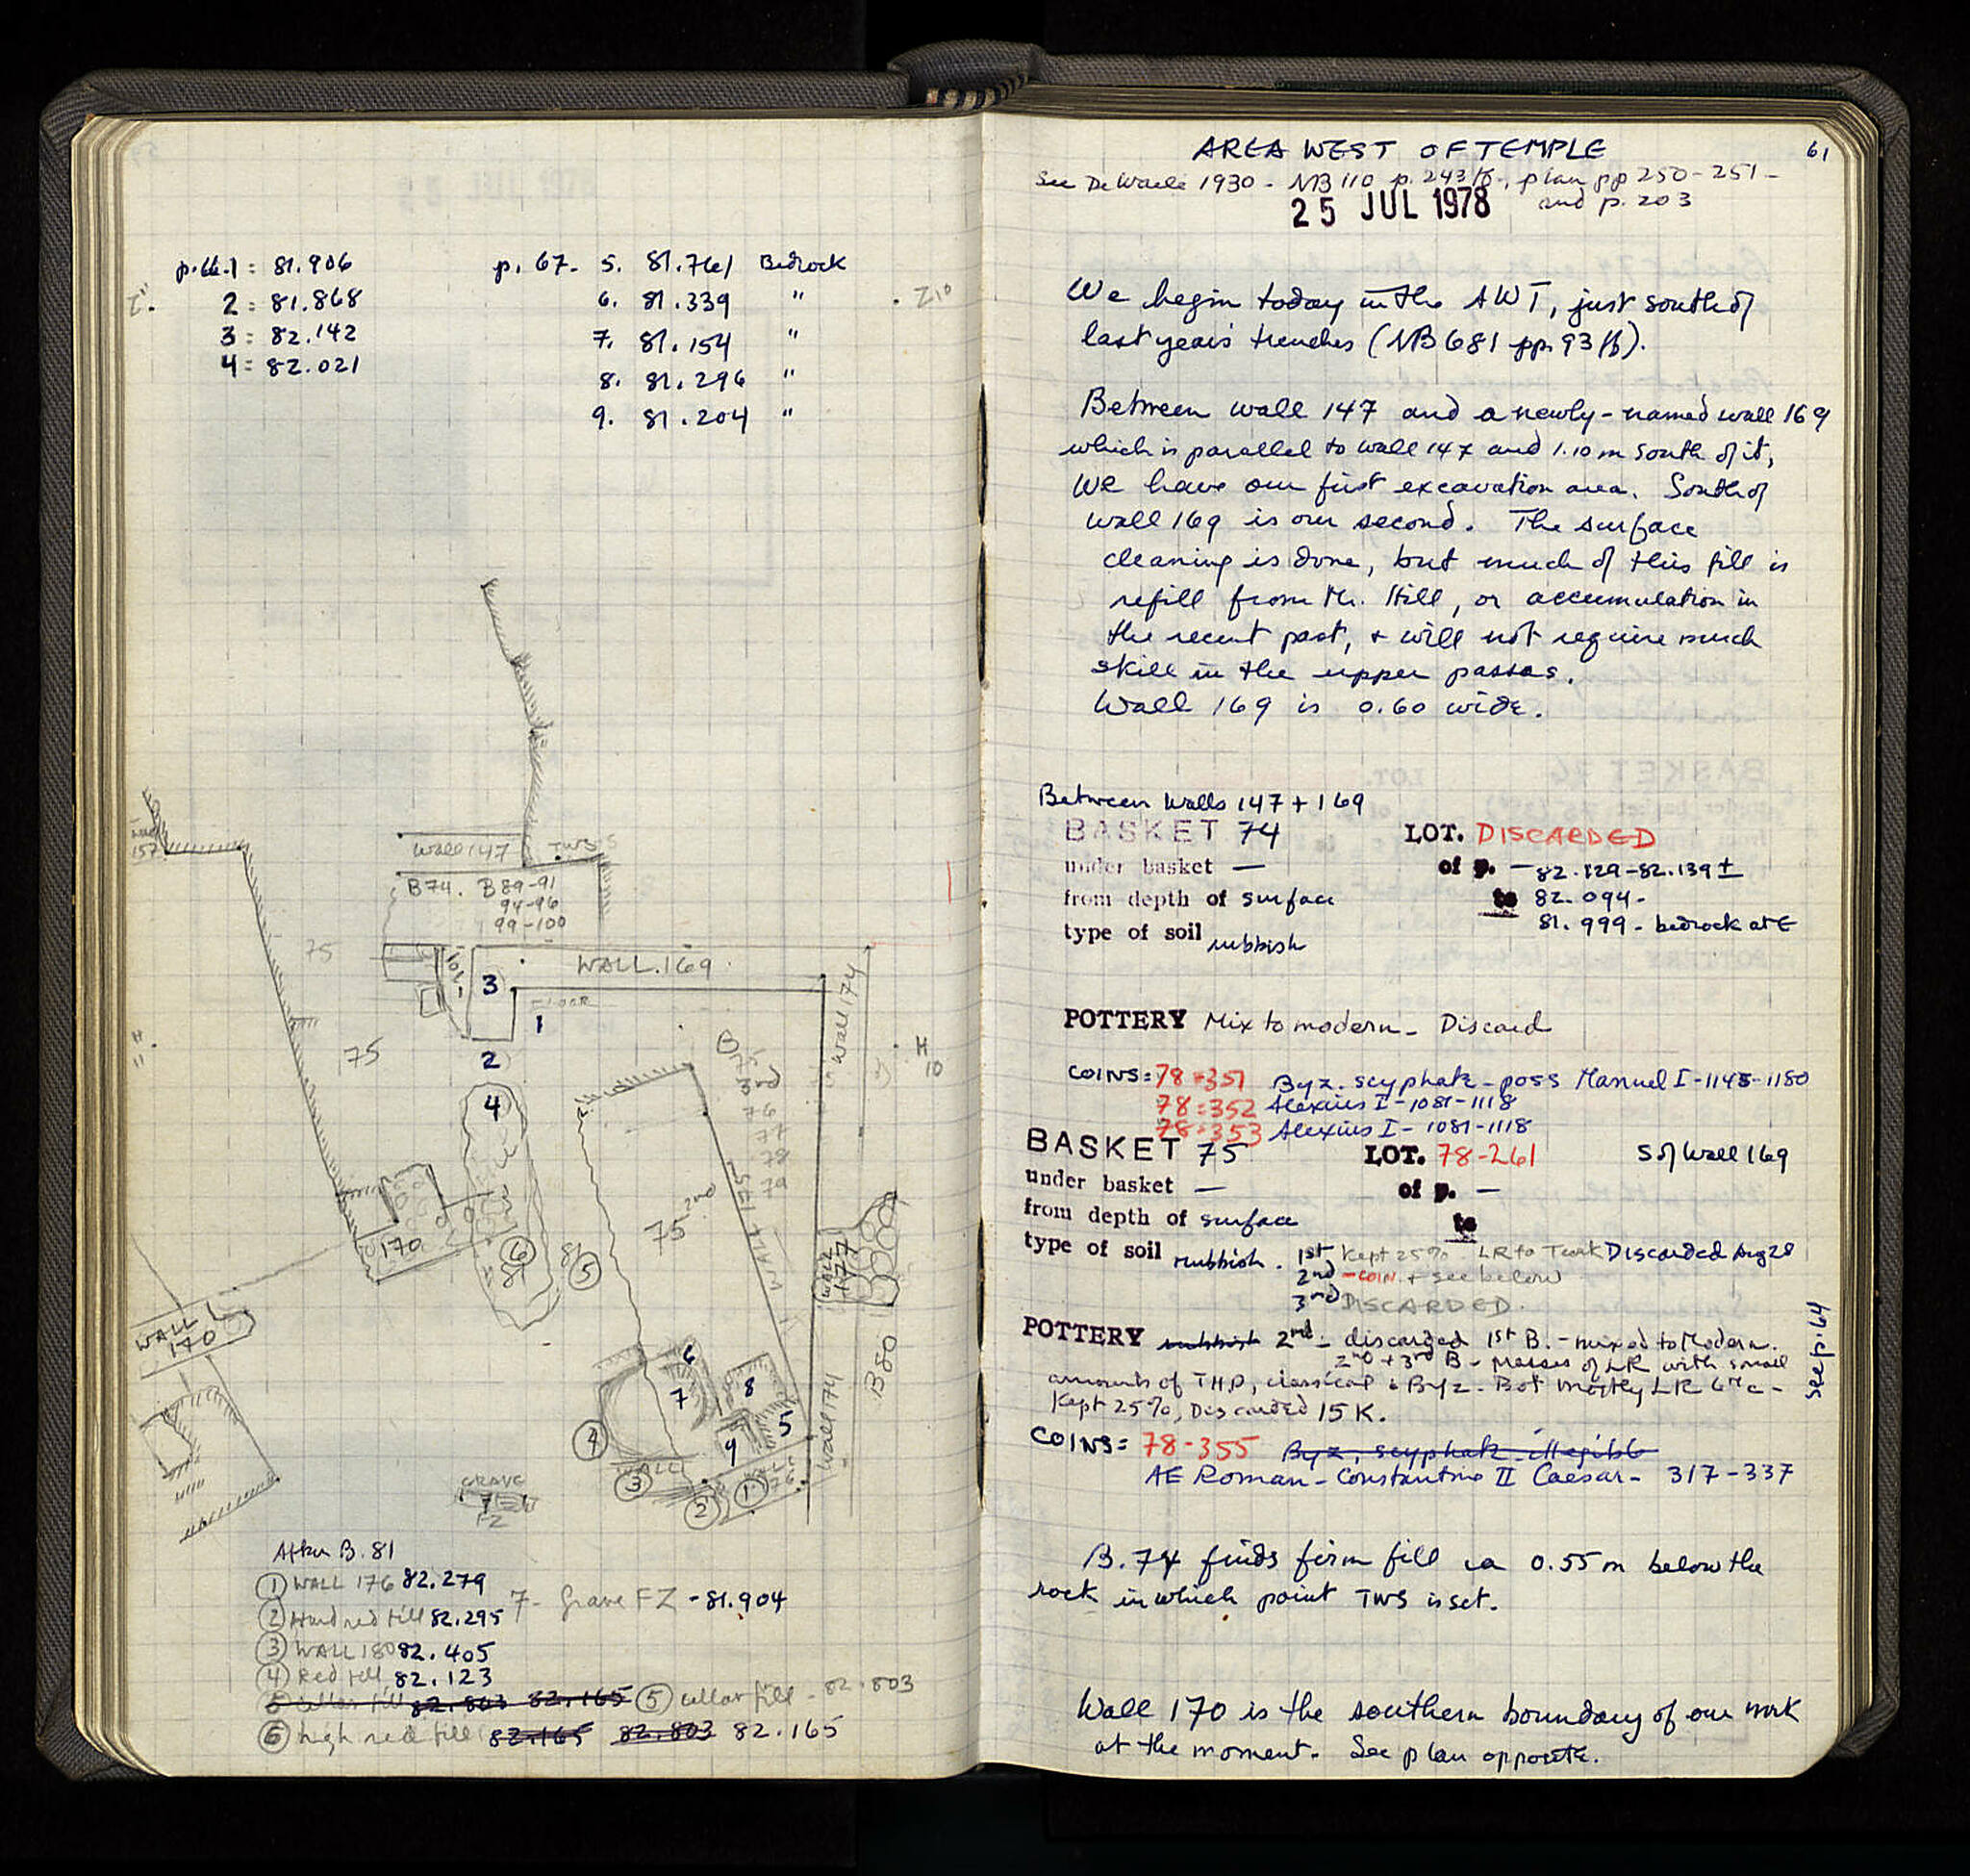 p.66-1 = 81.906
2 = 81.868
3 = 82.142
4 = 82.021
p. 67- 5. 81.761 Bedrock
6. 81.339 "
7. 81.154 "
8. 81.296 "
9. 81.204 "
Z10
157
Wall 147 TWS
B74. B89-91
94-96
99-100
75
101
3
WALL.169
FLOOR
1
2
75
4
Wall 174
H
10
B
75
3rd
76
77
78
79
75 2nd
WALL 175
170
6
5
WALL
177
WALL
170
B80
6
7
8
5
9
4
WALL
3
2
1
WALL
176
Wall 174
GRAVE
7
FZ
After B. 81
① WALL 176 82.279
② Hard red fill 82.295
③ WALL 180 82.405
④ Red fill, 82.123
5 cellar fill 82.803 82.165 ⑤ cellar fill - 82.803
⑥ high red fill 82.165 82.803 82.165
7- Grave FZ - 81.904
AREA WEST OF TEMPLE
61
See DeWaele 1930 - NB 110 p. 243 ff., plan pp 250-251-
and p. 203
25 JUL 1978
We begin today in the AWT, just south of
last year's trenches (NB 681 pp. 93 ff).
Between wall 147 and a newly-named wall 169
which is parallel to wall 147 and 1.10 m south of it,
we have our first excavation area. South of
wall 169 is our second. The surface
cleaning is done, but much of this fill is
refill from Mr. Hill, or accumulation in
the recent past, + will not require much
skill in the upper passes.
Wall 169 is 0.60 wide.
Between Walls 147 + 169
BASKET 74 LOT. DISCARDED
under basket — of p. — 82.129-82.139 ±
from depth of surface to 82.094-
81.999 - bedrock at E
type of soil rubbish
POTTERY Mix to modern - Discard
COINS: 78-351 Byz. scyphate - poss Manuel I - 1143-1180
78-352 Alexius I - 1081-1118
78-353 Alexius I - 1081-1118
BASKET 75 LOT. 78-261 S of Wall 169
under basket — of p. —
from depth of surface to
type of soil rubbish. 1st Kept 25% LR to Turk Discarded Aug 28
2nd - COIN. + see below
3rd DISCARDED.
POTTERY rubbish 2nd - discarded 1st B. - mixed to Modern.
2nd + 3rd B - Masses of LR with small
amounts of THP, classical + Byz. But mostly LR 6th c -
Kept 25%, Discarded 15 K.
see p. 64
COINS = 78-355 Byz, scyphate illegible
AE Roman - Constantine II Caesar - 317-337
B. 74 finds firm fill ca 0.55 m below the
rock in which point TWS is set.
Wall 170 is the southern boundary of our work
at the moment. See plan opposite.